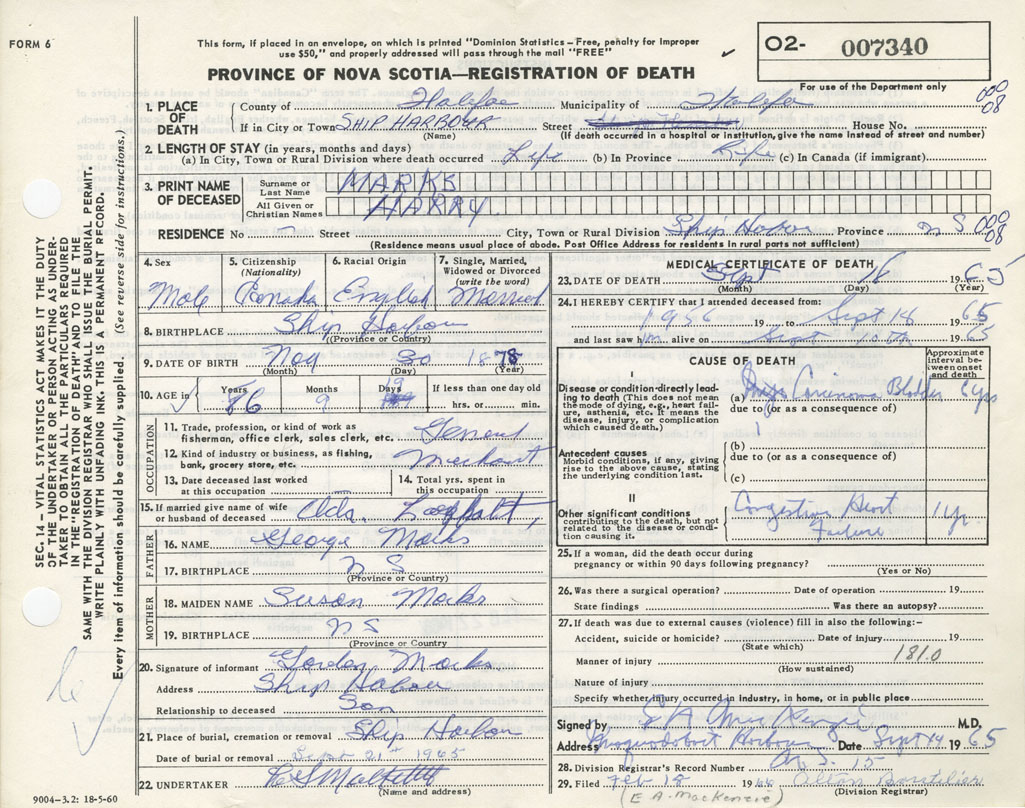 FORM 6
This form, if placed in an envelope, on which is printed "Dominion Statistics – Free, penalty for improper
use $50," and properly addressed will pass through the mail "FREE"
PROVINCE OF NOVA SCOTIA—REGISTRATION OF DEATH
O2- 007340
For use of the Department only
1. PLACE OF DEATH County of Halifax Municipality of Halifax 000 08
If in City or Town SHIP HARBOUR Street House No.
(Name) (If death occurred in a hospital or institution, give the name instead of street and number)
2. LENGTH OF STAY (in years, months and days)
(a) In City, Town or Rural Division where death occurred Life (b) In Province Life (c) In Canada (if immigrant)
3. PRINT NAME OF DECEASED
Surname or Last Name MARKS
All Given or Christian Names HARRY
RESIDENCE No Street City, Town or Rural Division Ship Harbour Province N S 000 08
(Residence means usual place of abode. Post Office Address for residents in rural parts not sufficient)
4. Sex Male
5. Citizenship (Nationality) Canada
6. Racial Origin English
7. Single, Married, Widowed or Divorced (write the word) Married
8. BIRTHPLACE Ship Harbour
(Province or Country)
9. DATE OF BIRTH Nov 30 1878
(Month) (Day) (Year)
10. AGE in Years 86 Months 9 Days 19 If less than one day old hrs. or min.
OCCUPATION
11. Trade, profession, or kind of work as fisherman, office clerk, sales clerk, etc. General
12. Kind of industry or business, as fishing, bank, grocery store, etc. Merchant
13. Date deceased last worked at this occupation
14. Total yrs. spent in this occupation
15. If married give name of wife or husband of deceased Ada
FATHER
16. NAME George Marks
17. BIRTHPLACE N S
(Province or Country)
MOTHER
18. MAIDEN NAME Susan Marks
19. BIRTHPLACE N S
(Province or Country
20. Signature of informant Gordon Marks
Address Ship Harbour
Relationship to deceased Son
21. Place of burial, cremation or removal Ship Harbour
Date of burial or removal Sept 21st 1965
22. UNDERTAKER
(Name and address)
9004–3.2: 18-5-60
MEDICAL CERTIFICATE OF DEATH
23. DATE OF DEATH Sept 18 1965
(Month) (Day) (Year)
24. I HEREBY CERTIFY that I attended deceased from:
1956 19 to Sept 18 1965
and last saw him alive on Sept 10th 1965
CAUSE OF DEATH
Approximate interval between onset and death
I
Disease or condition directly leading to death (This does not mean the mode of dying, e.g., heart failure, asthenia, etc. It means the disease, injury, or complication which caused death,)
(a) Carcinoma Bladder 6 yrs
due to (or as a consequence of)
Antecedent causes
Morbid conditions, if any, giving rise to the above cause, stating the underlying condition last.
(b)
due to (or as a consequence of)
(c)
II
Other significant conditions contributing to the death, but not related to the disease or condition causing it.
Congestive Heart Failure 1 yr.
25. If a woman, did the death occur during pregnancy or within 90 days following pregnancy?
(Yes or No)
26. Was there a surgical operation? Date of operation 19
State findings Was there an autopsy?
27. If death was due to external causes (violence) fill in also the following:–
Accident, suicide or homicide? Date of injury 19
(State which)
Manner of injury 181.0
(How sustained)
Nature of injury
Specify whether injury occurred in industry, in home, or in public place
Signed by E A MacKenzie M.D.
Address Musquodoboit Harbour Date Sept 19 1965
28. Division Registrar's Record Number 15
29. Filed Feb 18 1966 Boutilier
(Division Registrar)
(E A. MacKenzie)
SEC. 14 – VITAL STATISTICS ACT MAKES IT THE DUTY
OF THE UNDERTAKER OR PERSON ACTING AS UNDER-
TAKER TO OBTAIN ALL THE PARTICULARS REQUIRED
IN THE "REGISTRATION OF DEATH" AND TO FILE THE
SAME WITH THE DIVISION REGISTRAR WHO SHALL ISSUE THE BURIAL PERMIT.
WRITE PLAINLY WITH UNFADING INK. THIS IS A PERMANENT RECORD.
Every item of information should be carefully supplied. (See reverse side for instructions.)